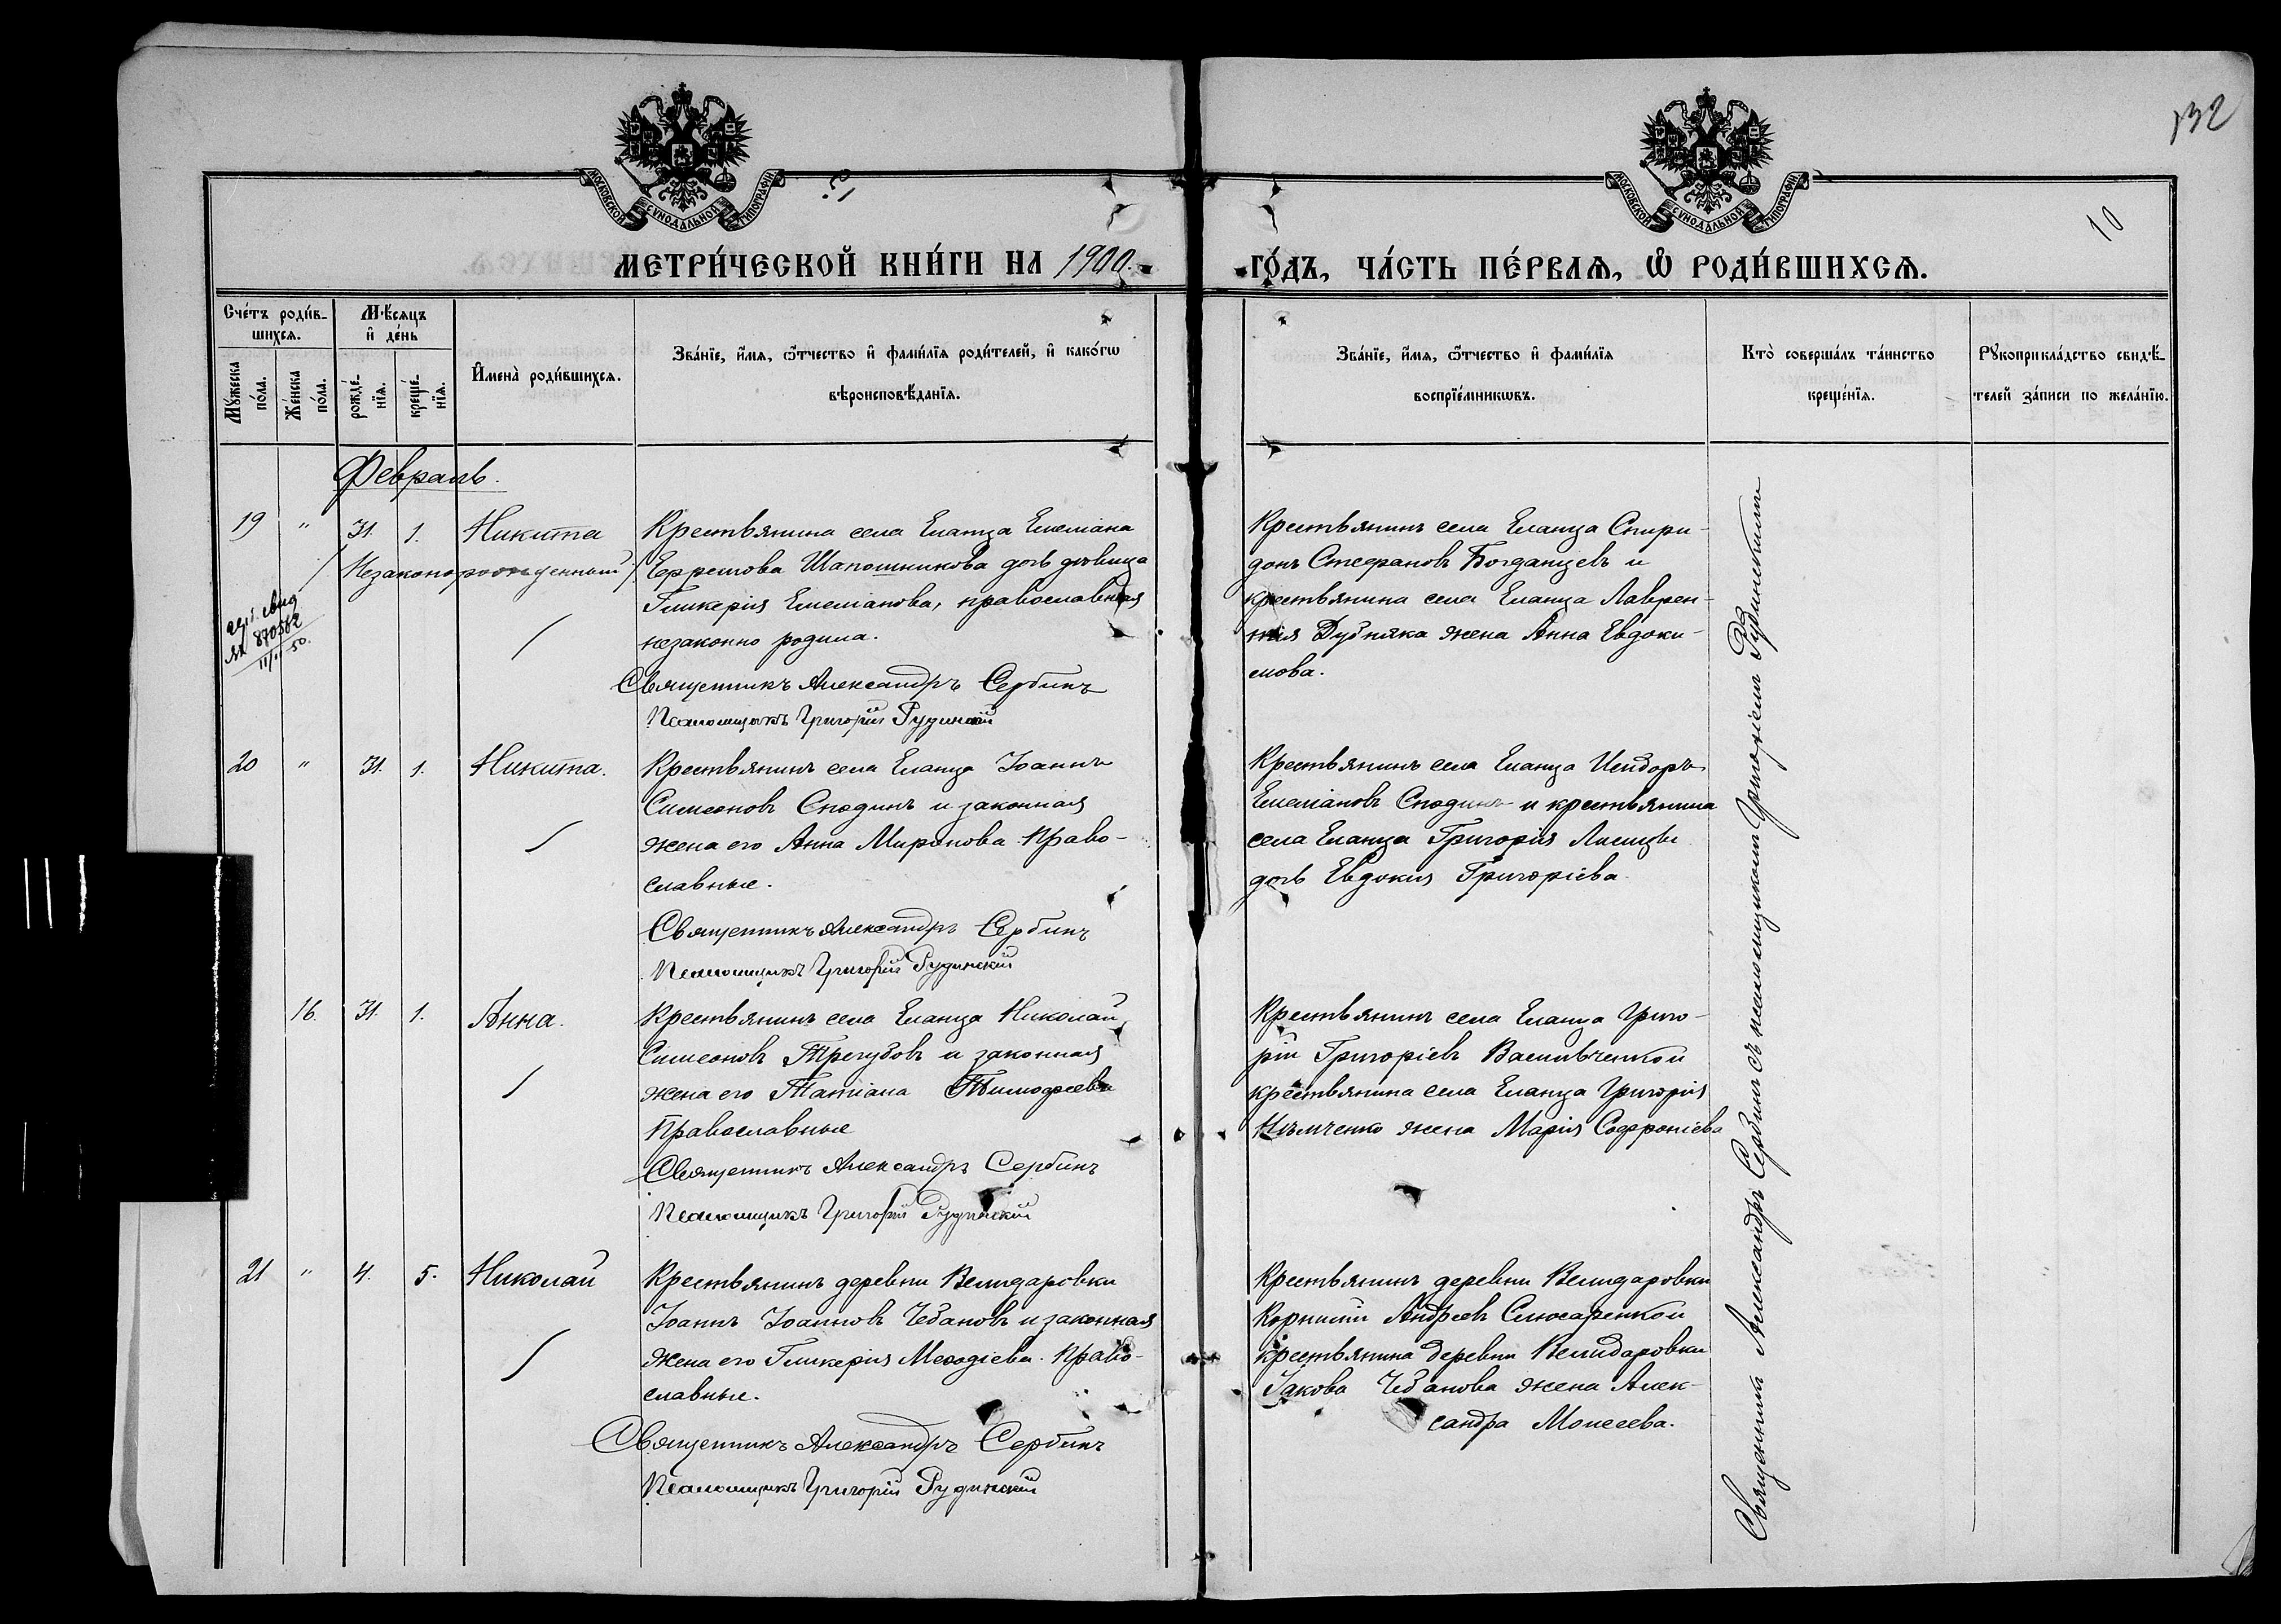 132
10
МОСКОВСКОЙ СѴНОДАЛЬНОЙ ТИПОГРАФІИ
МОСКОВСКОЙ СѴНОДАЛЬНОЙ ТИПОГРАФІИ
МЕТРИ́ЧЕСКОЙ КНИ́ГИ НА 1900. ГО́ДЪ, ЧА́СТЬ ПЕ́РВАѦ, Ѽ РОДИ́ВШИХСѦ.
Сче́тъ роди́в-
шихсѧ.
Мѣ́сѧцъ
и҆ де́нь
Мꙋ́жеска по́ла.
Же́нска по́ла.
рожде́-нїѧ.
креще́-нїѧ.
И҆мена̀ роди́вшихсѧ.
Зва́нїе, и҆́мѧ, ѻ҆́тчество и҆ фами́лїѧ роди́телей, и҆ како́гѡ
вѣроисповѣ́данїѧ.
Зва́нїе, и҆́мѧ, ѻ҆́тчество и҆ фами́лїѧ
воспрїе́мникѡвъ.
Кто̀ соверша́лъ та́инство
креще́нїѧ.
Рꙋкоприкла́дство свидѣ́-
телей за́писи по жела́нїю.
Февраль.
19 " 31. 1. Никита
/Незаконорожденный/
Крестьянина села Еланца Емеліана
Ефремова Шапошникова дочь девица
Гликерія Емеліанова, православная
незаконно родила.
Священникъ Александръ Сербинъ
Псаломщикъ Григорій Рудинскій
Крестьянинъ села Еланца Спири-
донъ Стефановъ Богданцевъ и
крестьянина села Еланца Лаврен-
тия Дубняка жена Анна Евдоки-
мова.
свид
ЯХ 870562
11/II-50.
20 " 31. 1. Никита.
Крестьянинъ села Еланца Іоаннъ
Симеоновъ Сподинъ и законная
жена его Анна Миронова. Право-
славные.
Священникъ Александръ Сербинъ
Псаломщикъ Григорій Рудинскій
Крестьянинъ села Еланца Исидоръ
Емеліановъ Сподинъ и крестьянина
села Еланца Григорія Лисицы
дочь Евдокия Григоріева.
16. 31. 1. Анна.
Крестьянинъ села Еланца Николай
Симеоновъ Трегубовъ и законная
жена его Татіана Тимофеева
Православные
Священникъ Александръ Сербинъ
Псаломщикъ Григорій Рудинскій
Крестьянинъ села Еланца Григо-
рій Григоріевъ Васильченко и
крестьянина села Еланца Григорія
жена Марія Софроніева
21 " 4. 5. Николай
Крестьянинъ деревни Велидаровки
Іоаннъ Іоанновъ Чебановъ и законная
жена его Гликерія Меѳодіева. Право-
славные.
Священникъ Александръ Сербинъ
Псаломщикъ Григорій Рудинскій
Крестьянинъ деревни Велидаровки
Корнилій Андреевъ Слюсаренко и
крестьянина деревни Велидаровки
Іакова Чебанова жена Алек-
сандра Моисеева.
Священникъ Александръ Сербинъ съ псаломщикомъ Григоріемъ Рудинскимъ